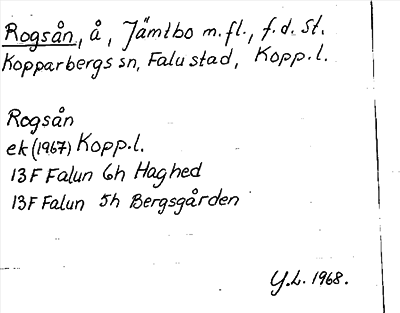 Rogsån, å, Jämtbo m.fl., f.d. St.
Kopparbergs sn, Falu stad, Kopp.l.
Rogsån
ek (1967) Kopp.l.
13F Falun 6h Haghed
13F Falun 5h Bergsgården
Y.L. 1968.